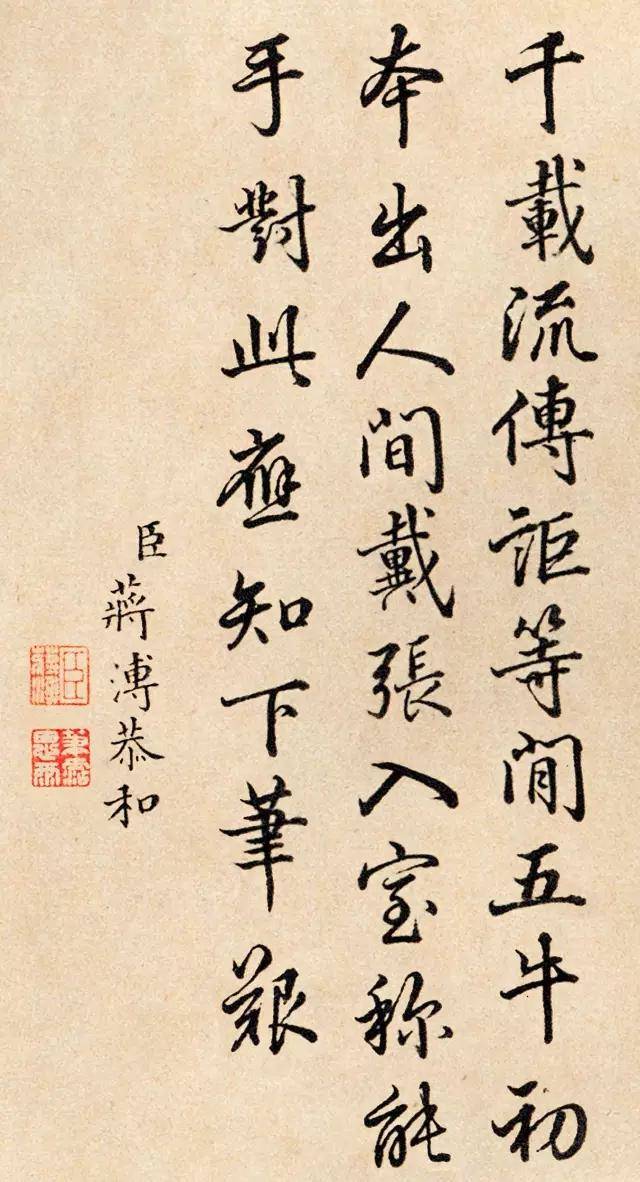 千載流傳詎等閒五牛初
本出人間戴張入室稱能
手對此應知下筆艱
臣蔣溥恭和